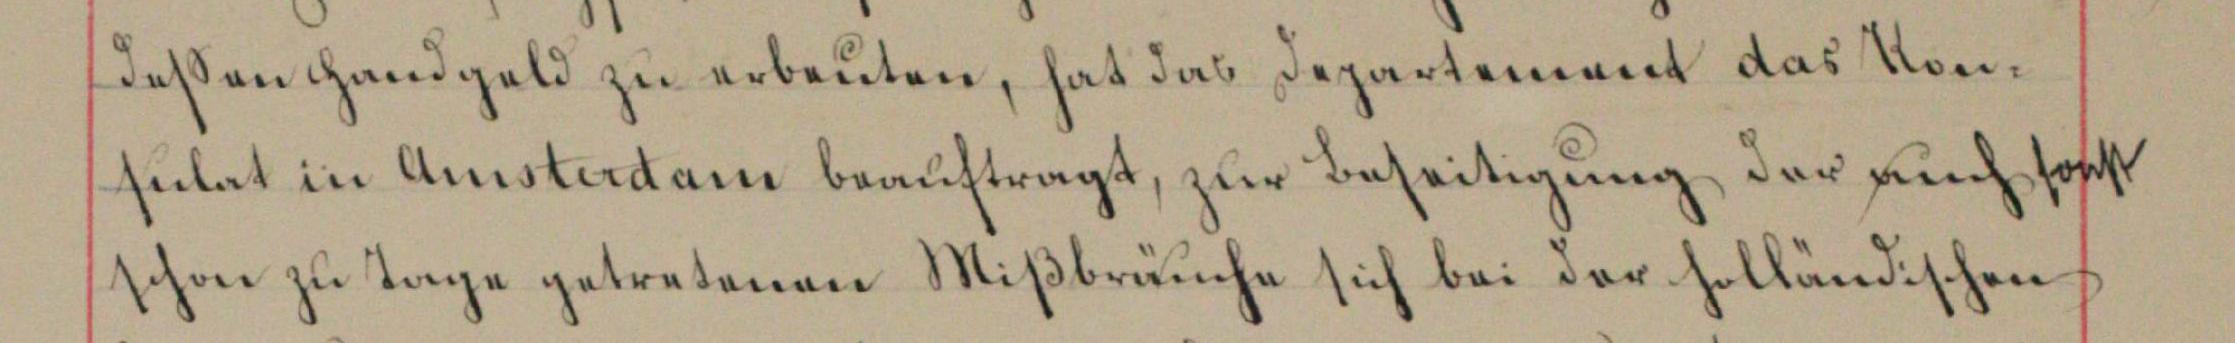 dessen Handgeld zu erbeuten, hat das Departement das Kon-
sulat in Amsterdam beauftragt, zur Beseitigung der auch sonst
schon zu Tage getretenen Mißbräuche sich bei der holländischen